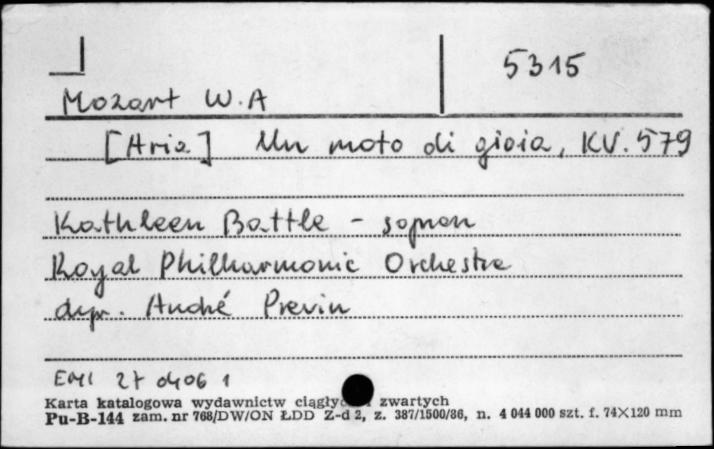 5315
Mozart W.A
[Aria] Un moto di gioia, KV. 579
Kathleen Battle - sopran
Royal Philharmonic Orchestra
dyr. André Previn
EMI 27 0406 1
Karta katalogowa wydawnictw ciągły zwartych
Pu-B-144 zam. nr 768/DW/ON ŁDD Z-d 2, z. 387/1500/86, n. 4 044 000 szt. f. 74×120 mm